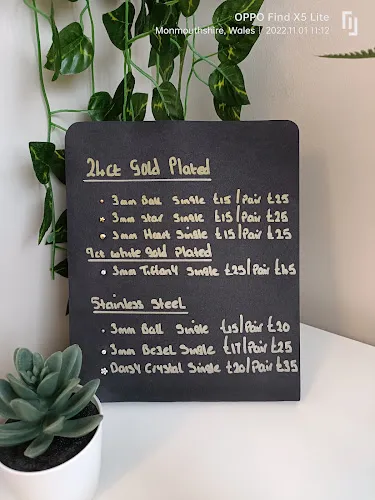 OPPO Find X5 Lite
Monmouthshire, Wales | 2022.11.01 11:12
24ct Gold Plated
• 3mm Ball Single £15/Pair £25
• 3mm Star Single £15/Pair £25
• 3mm Heart Single £15/Pair £25
9ct White Gold Plated
• 3mm Tiffany Single £25/Pair £45
Stainless Steel
• 3mm Ball Single £15/Pair £20
• 3mm Bezel Single £17/Pair £25
Daisy Crystal Single £20/Pair £35